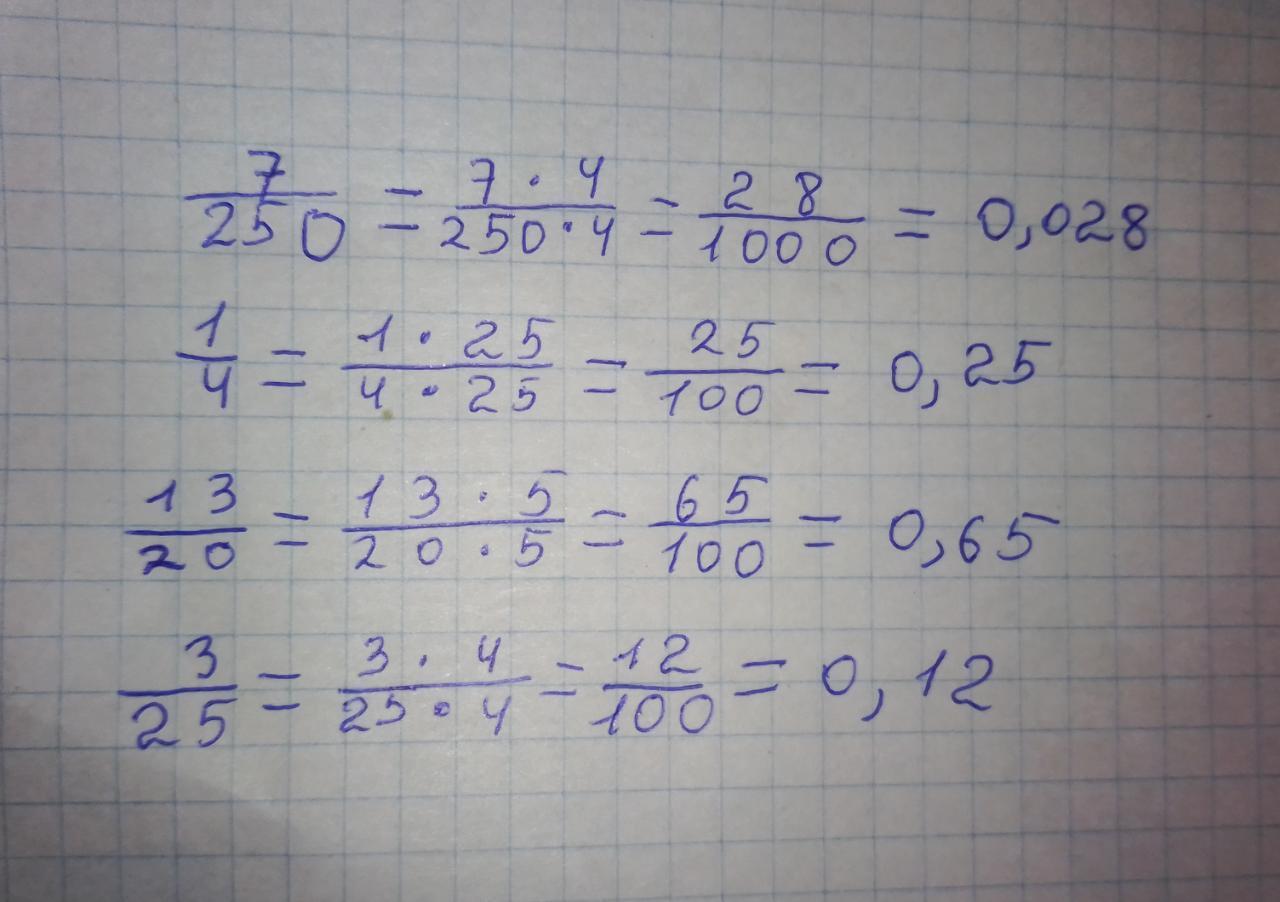 7/250 = 7·4/250·4 = 28/1000 = 0,028
1/4 = 1·25/4·25 = 25/100 = 0,25
13/20 = 13·5/20·5 = 65/100 = 0,65
3/25 = 3·4/25·4 = 12/100 = 0,12